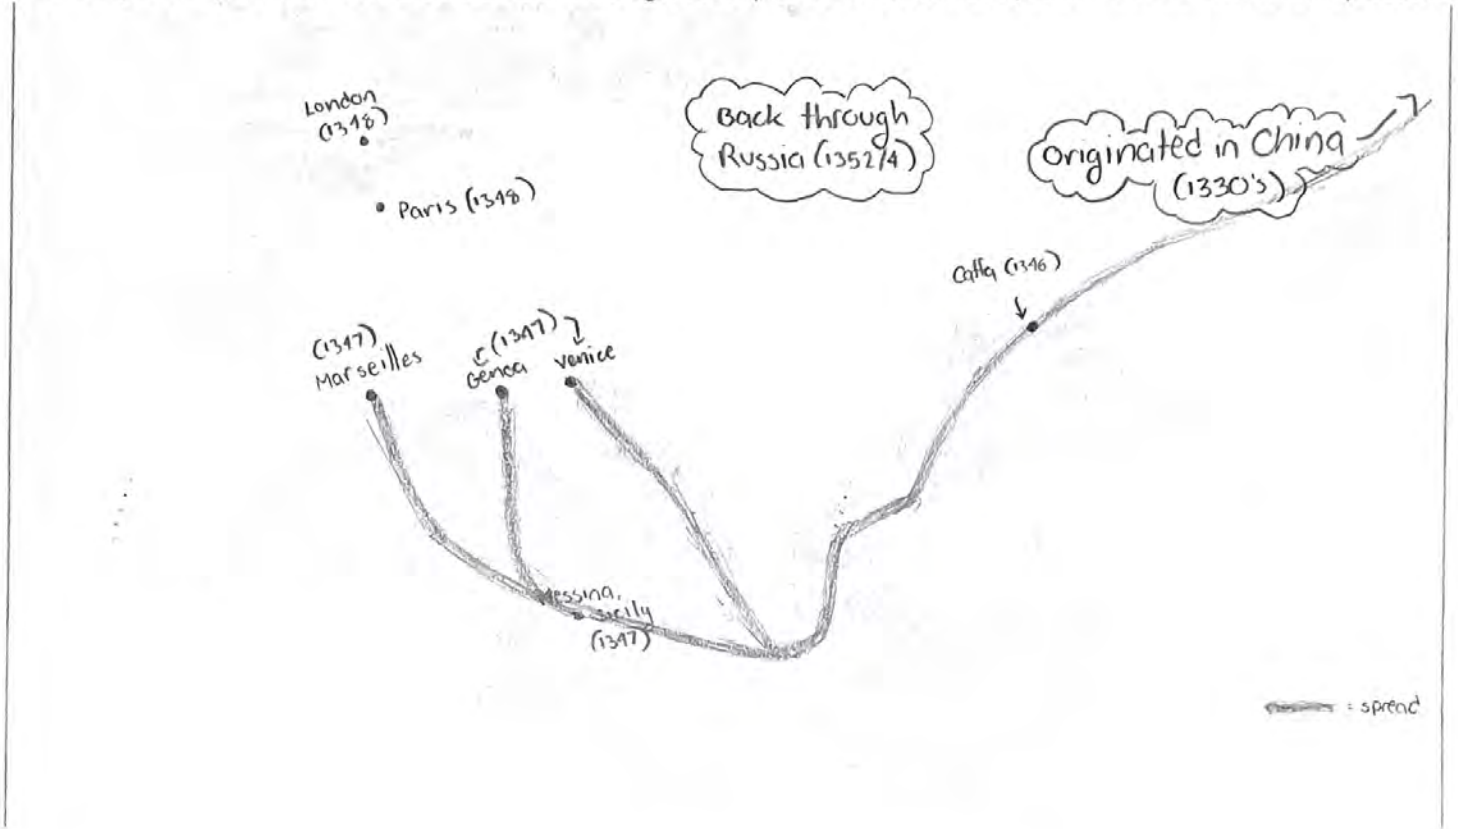 London
(1348)
Paris (1348)
Back through
Russia (1352/4)
Originated in China
(1330's)
Caffa (1346)
(1347)
Marseilles
(1347)
Genoa
Venice
Messina,
Sicily
(1347)
= spread